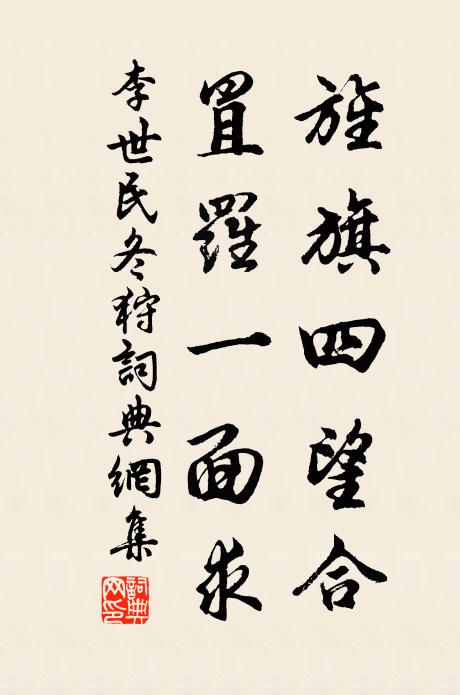 旌旗四望合
罝羅一面求
李世民冬狩詞典網集
詞典網印